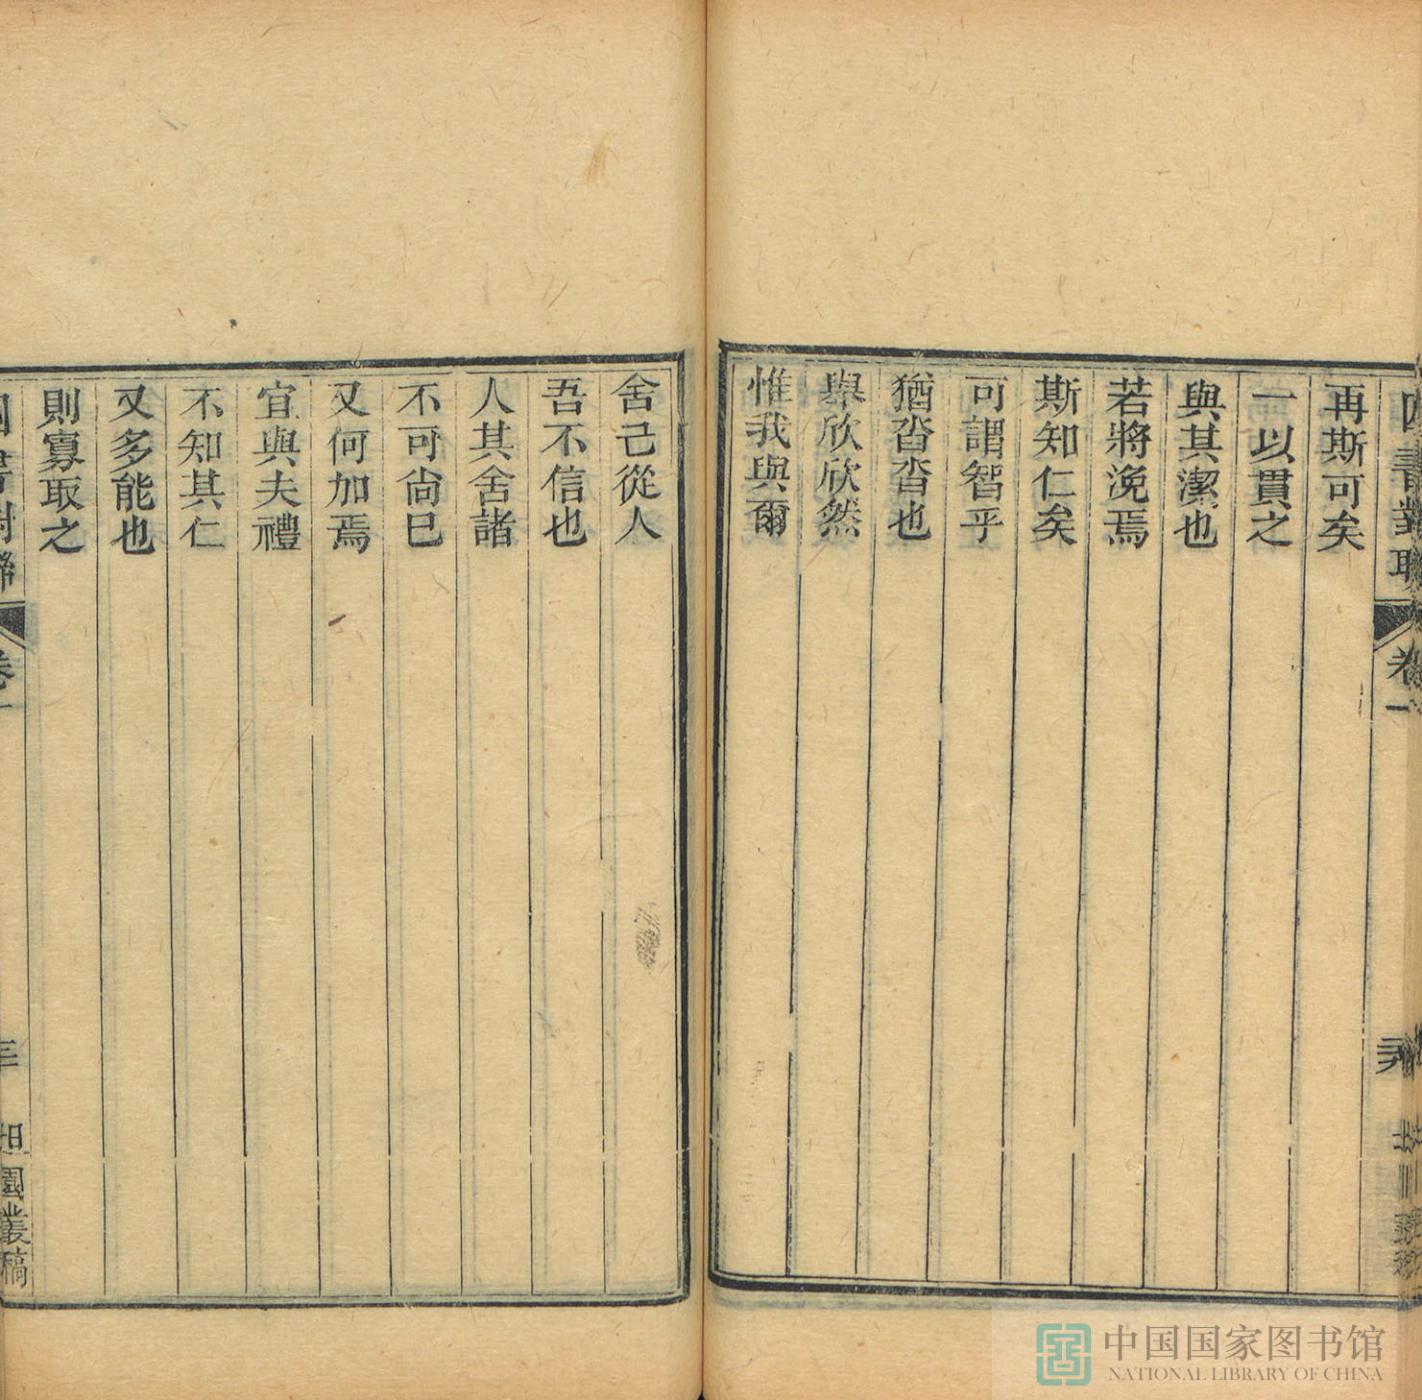 四書對聯
卷一
再斯可矣
一以貫之
與其潔也
若將浼焉
斯知仁矣
可謂智乎
猶沓沓也
舉欣欣然
惟我與爾
舍己從人
吾不信也
人其舍諸
不可尙巳
又何加焉
宜與夫禮
不知其仁
又多能也
則寡取之
四書對聯
卷一
三
柤園叢稿
中国国家图书馆
NATIONAL LIBRARY OF CHINA